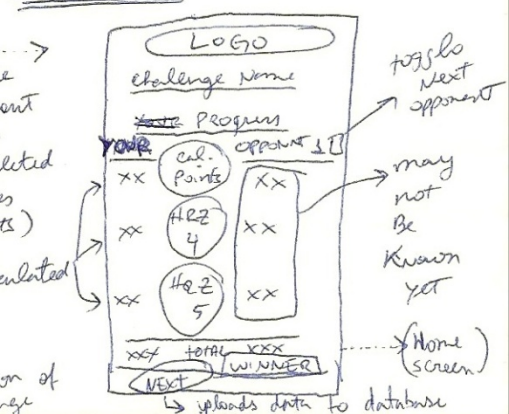 LOGO
Challenge Name
Progress
YOUR
OPPONENT 1
cal.
Points
XX
XX
HRZ
4
XX
XX
HRZ
5
XX
XX
XXX TOTAL XXX
WINNER
NEXT
↳ uploads data to database
toggle
Next
opponent
may
not
Be
Known
yet
(Home
screen)